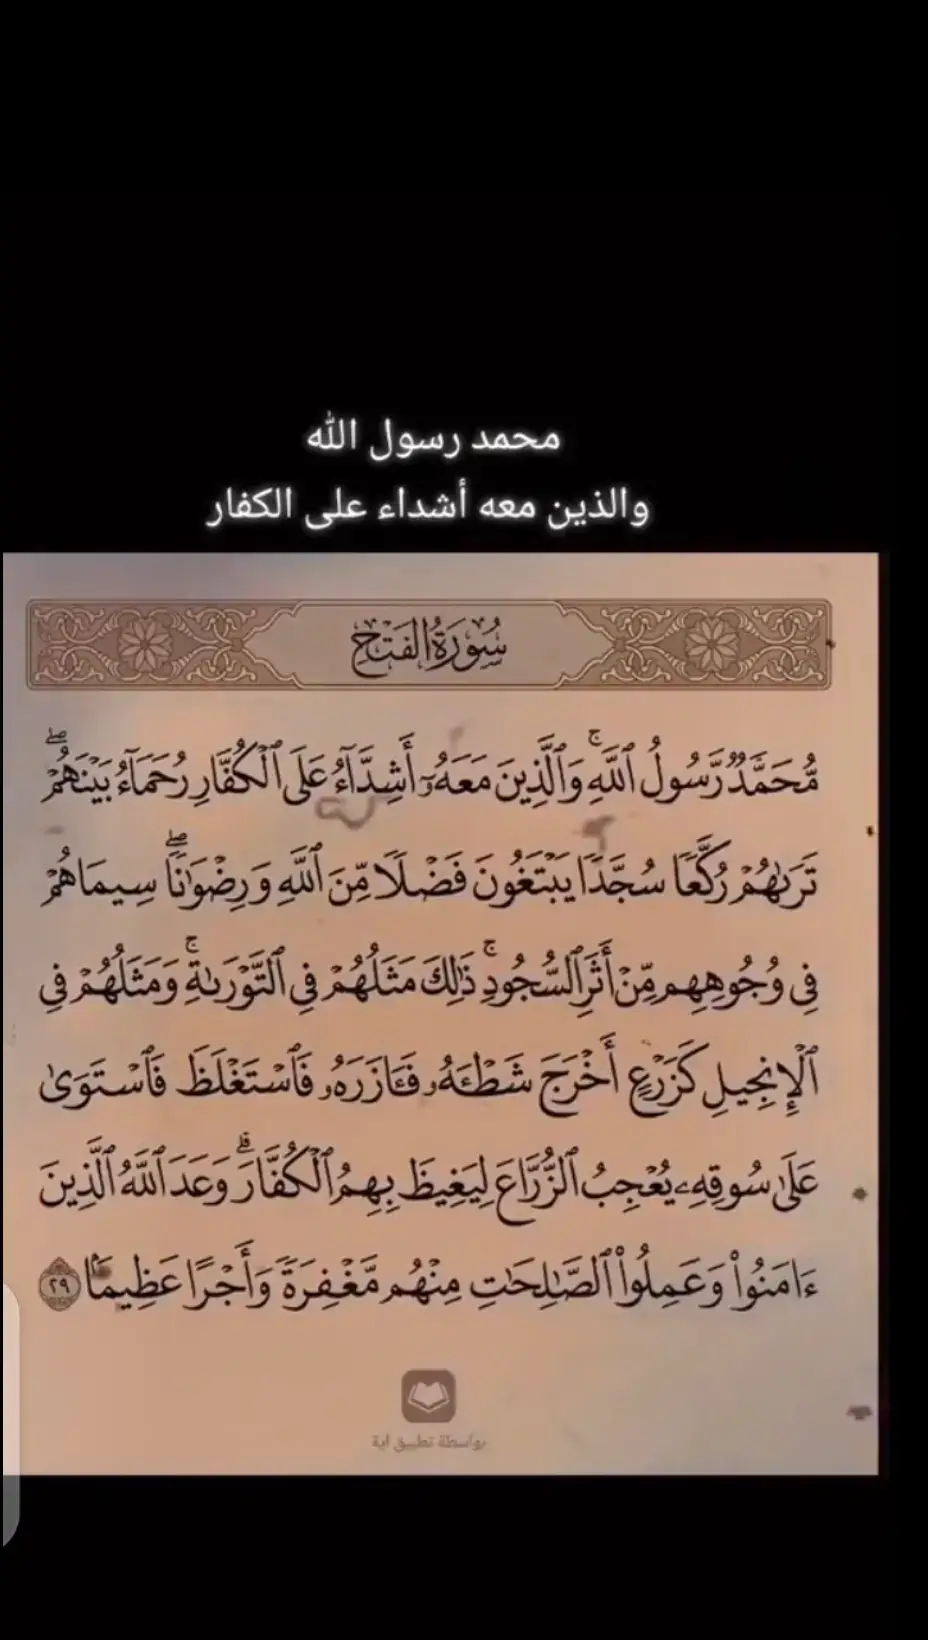 محمد رسول الله
والذين معه أشداء على الكفار
سُورَةُ الفَتْحِ
مُّحَمَّدٌ رَّسُولُ ٱللَّهِۚ وَٱلَّذِينَ مَعَهُۥٓ أَشِدَّآءُ عَلَى ٱلْكُفَّارِ رُحَمَآءُ بَيْنَهُمْۖ
تَرَىٰهُمْ رُكَّعًا سُجَّدًا يَبْتَغُونَ فَضْلًا مِّنَ ٱللَّهِ وَرِضْوَٰنًاۖ سِيمَاهُمْ
فِى وُجُوهِهِم مِّنْ أَثَرِ ٱلسُّجُودِۚ ذَٰلِكَ مَثَلُهُمْ فِى ٱلتَّوْرَىٰةِۚ وَمَثَلُهُمْ فِى
ٱلْإِنجِيلِ كَزَرْعٍ أَخْرَجَ شَطْـَٔهُۥ فَـَٔازَرَهُۥ فَٱسْتَغْلَظَ فَٱسْتَوَىٰ
عَلَىٰ سُوقِهِۦ يُعْجِبُ ٱلزُّرَّاعَ لِيَغِيظَ بِهِمُ ٱلْكُفَّارَۗ وَعَدَ ٱللَّهُ ٱلَّذِينَ
ءَامَنُوا۟ وَعَمِلُوا۟ ٱلصَّٰلِحَٰتِ مِنْهُم مَّغْفِرَةً وَأَجْرًا عَظِيمًۢا ٢٩
بواسطة تطبيق آية